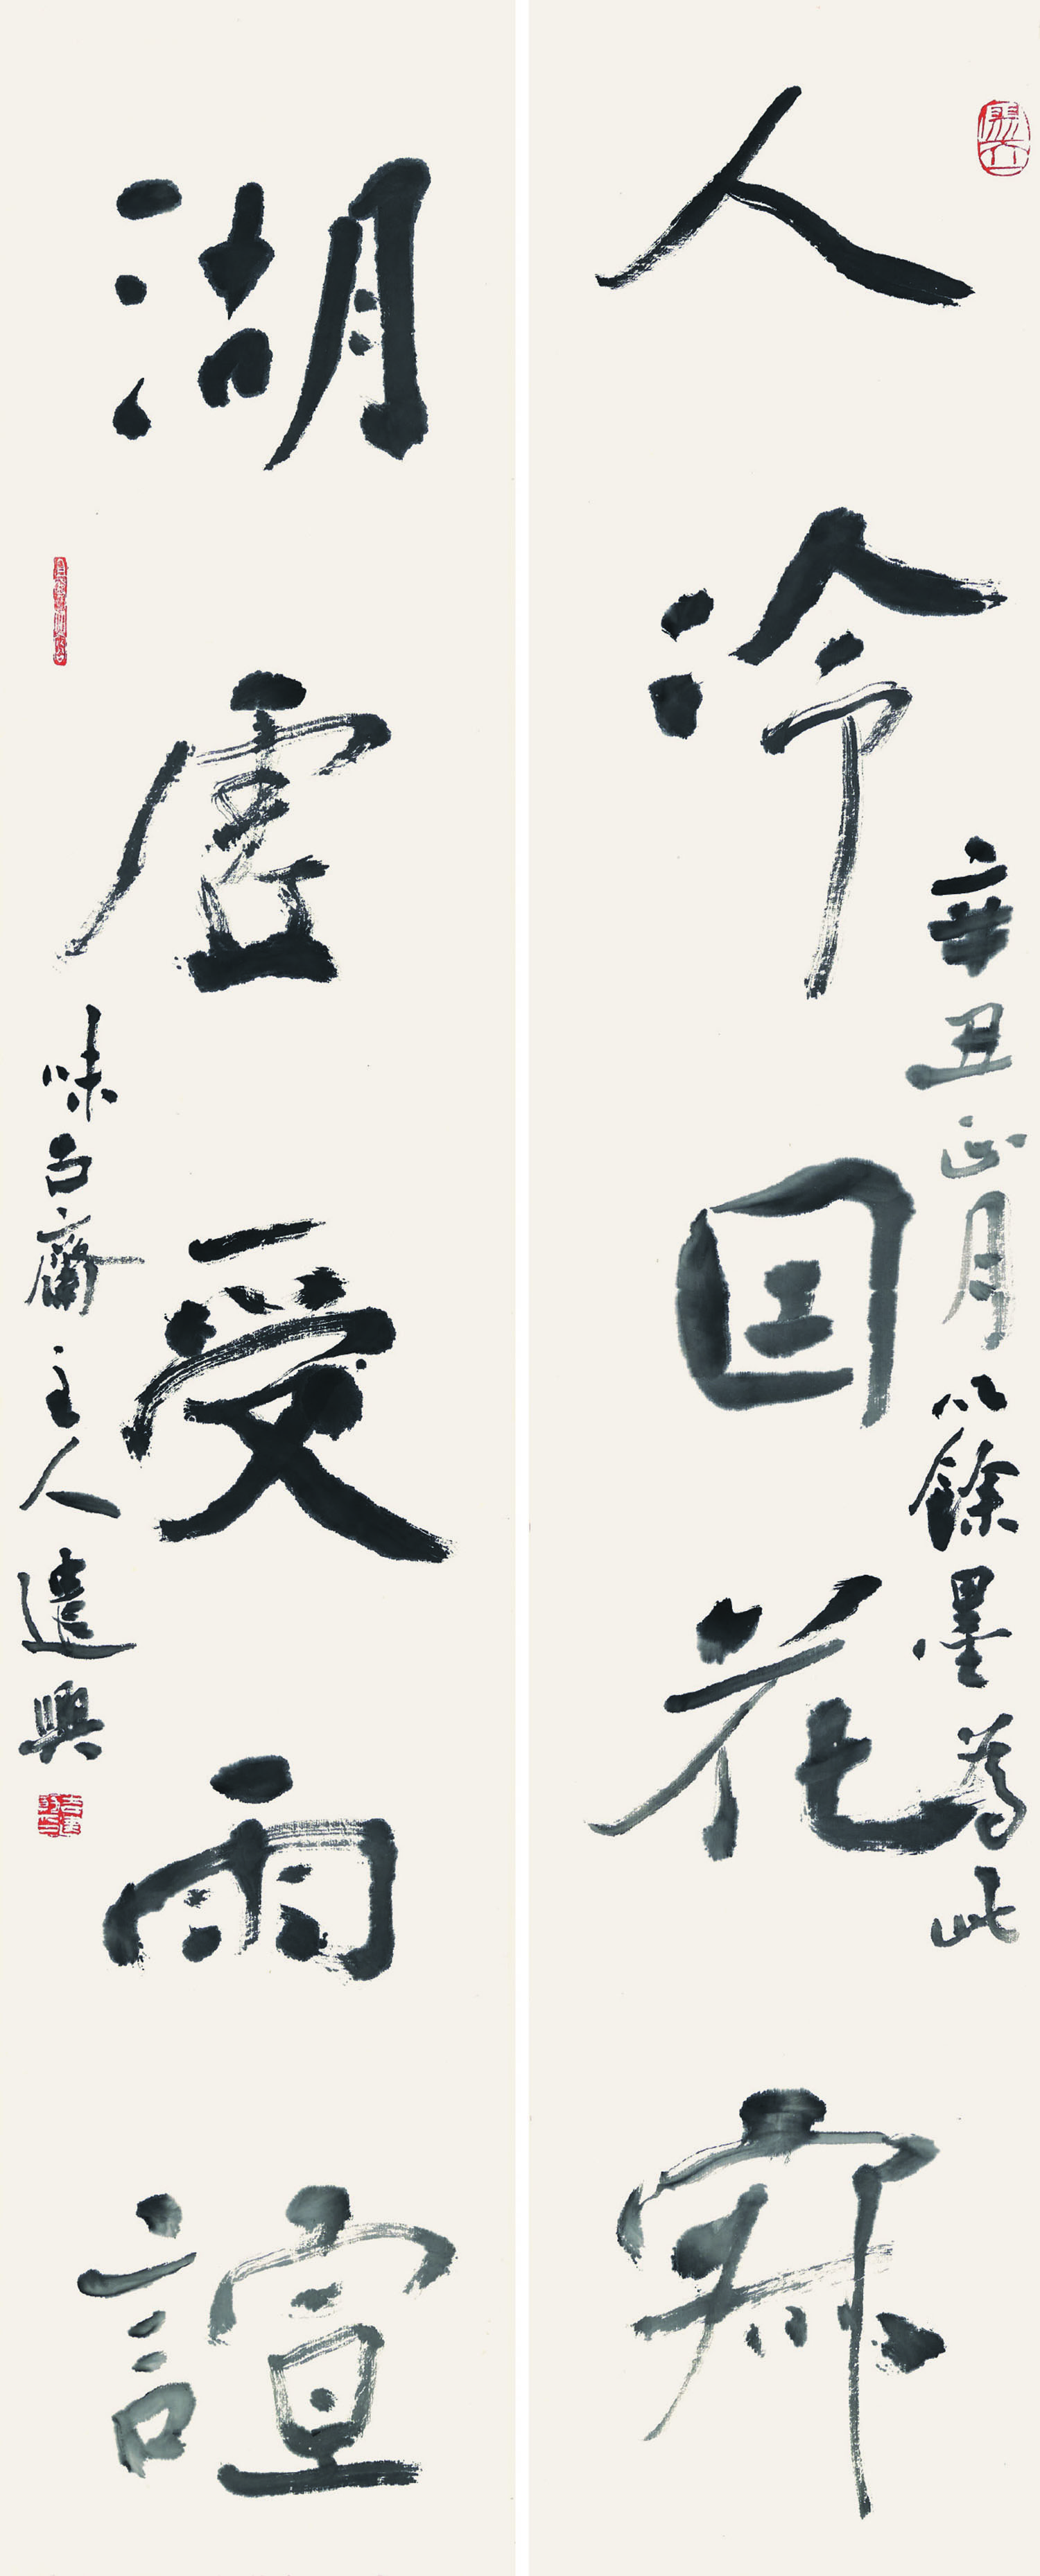 人冷回花寂
辛丑正月以餘墨為此
湖虛受雨諠
味台齋主人遣興